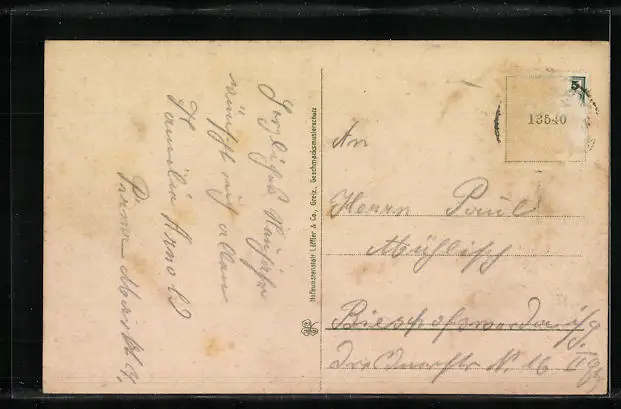 Herzliches Neujahr
wünscht euch allen
Familie Arnold
Pirna Markt 9.
Hofkunstanstalt Löffler & Co., Greiz, Geschmacksmusterschutz
13540
An
Herrn Paul
Mühlisch
Bischofswerda i/S.
N. 16 II